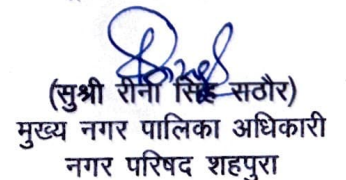 (सुश्री रीना सिंह राठौर)
मुख्य नगर पालिका अधिकारी
नगर परिषद शहपुरा